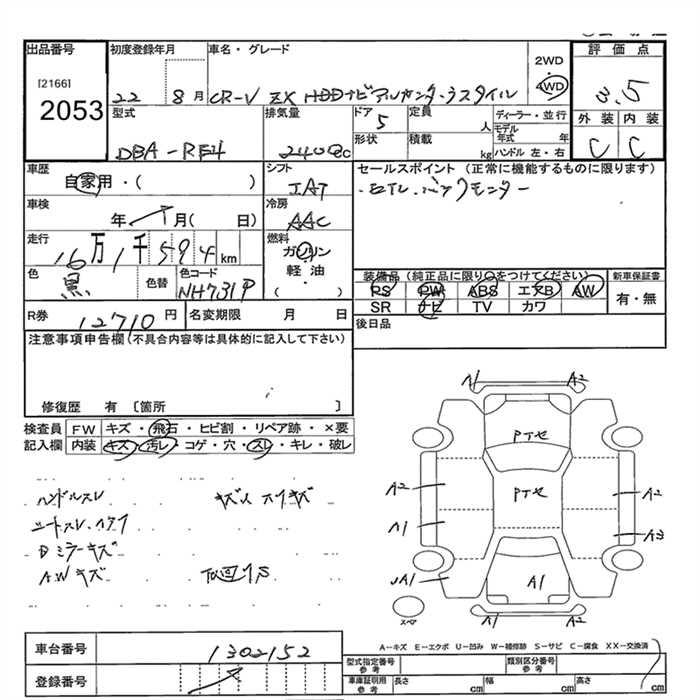 出品番号
初度登録年月
車名・グレード
2WD
4WD
評価点
[2166]
2053
22 8月
CR-V ZX HDDナビアルカンターラスタイル
3.5
型式
排気量
ドア 5
定員 人
ディーラー・並行
モデル年式 年
外装
内装
DBA-RE4
2400cc
形状
積載 kg
ハンドル 左・右
C
C
車歴
自家用・( )
シフト
IAT
セールスポイント (正常に機能するものに限ります)
車検
年 月( 日)
冷房
AAC
走行
16万1千594km
燃料
ガソリン
軽油
( )
色
黒
色替
色コード
NH731P
装備品(純正品に限り○をつけてください)
新車保証書
PS PW ABS エアB AW
有・無
SR ナビ TV カワ
R券
12710円
名変期限 月 日
後日品
注意事項申告欄(不具合内容等は具体的に記入して下さい)
修復歴 有 〔箇所 〕
検査員
記入欄
FW キズ・飛石・ヒビ割・リペア跡・×要
内装 キズ・汚レ・コゲ・穴・スレ・キレ・破レ
ハンドルスレ
Dミラーキズ
AWキズ
A1 A2
Pτセ
A2 Pτセ A2
A1 A3
A1 A1
スペア
A1 A2
A-キズ E-エクボ U-凹み W-補修跡 S-サビ C-腐食 XX-交換済
車台番号
1302152
型式指定番号
参考
類別区分番号
参考
登録番号
車庫証明用
参考
長さ cm
幅 cm
高さ cm